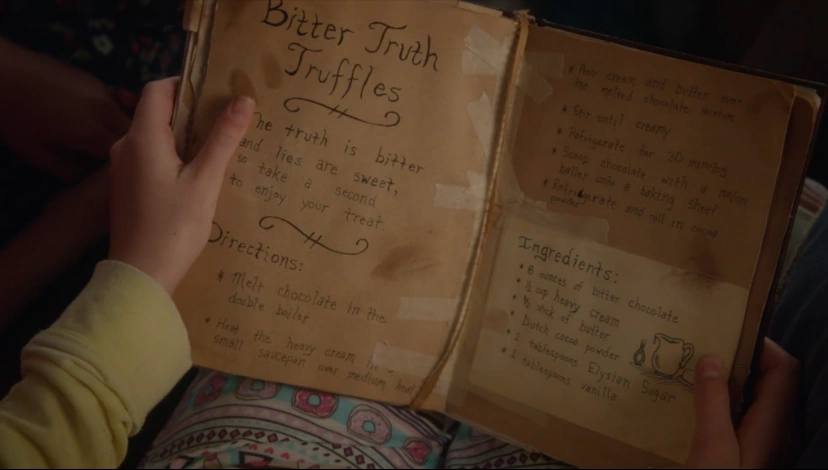 Bitter Truth
Truffles
The truth is bitter
and lies are sweet,
so take a second
to enjoy your treat.
Directions:
* Melt chocolate in the
double boiler
* Heat the heavy cream in a
small saucepan over medium heat
* Pour cream and butter over
the melted chocolate mixture
* Stir until creamy
* Refrigerate for 30 minutes
* Scoop chocolate with a melon
baller onto a baking sheet
* Refrigerate and roll in cocoa
powder
Ingredients:
* 8 ounces of bitter chocolate
* ½ cup heavy cream
* ½ stick of butter
* Dutch cocoa powder
* 2 tablespoons Elysian Sugar
* 2 tablespoons vanilla